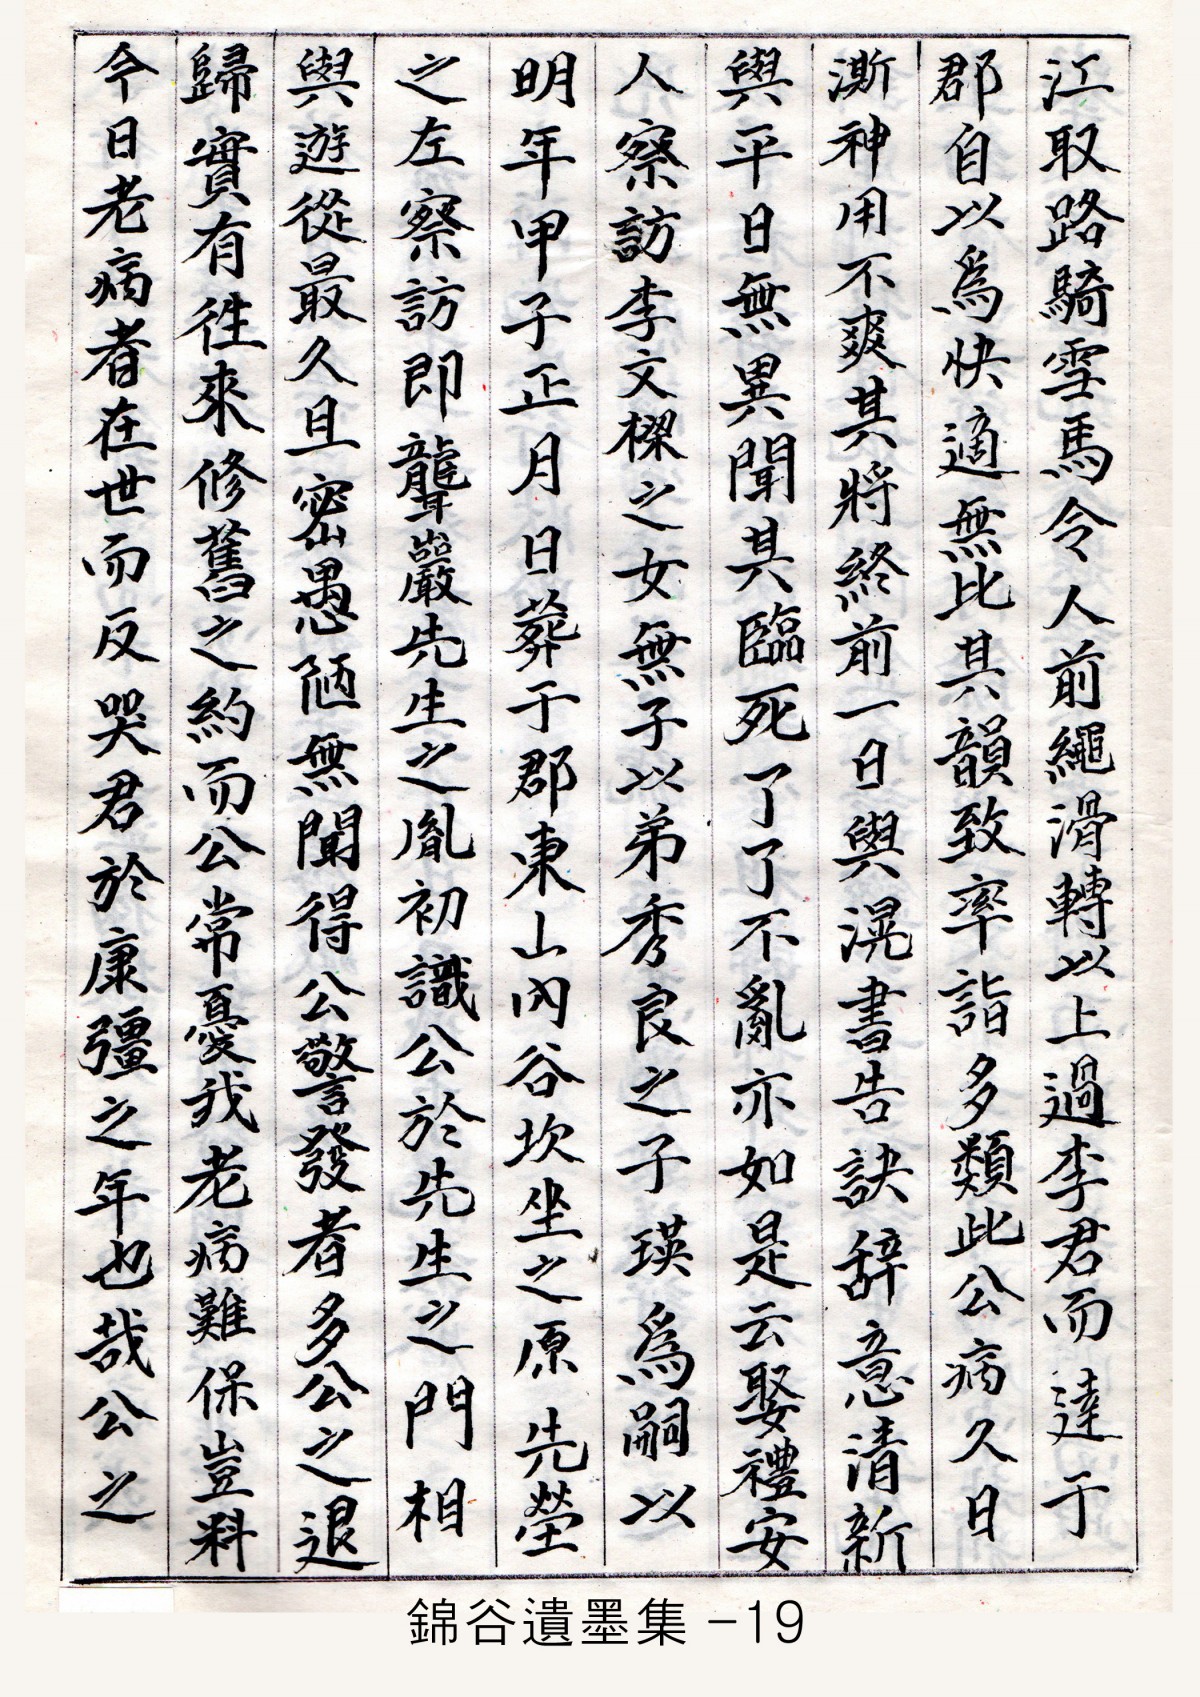 江取路騎雪馬令人前繩滑轉以上過李君而達于
郡自以爲快適無比其韻致率詣多類此公病久日
澌神用不爽其將終前一日與滉書告訣辞意清新
與平日無異聞其臨死了了不亂亦如是云娶禮安
人察訪李文樑之女無子以弟秀良之子瑛爲嗣以
明年甲子正月日葬于郡東山內谷坎坐之原先塋
之左察訪即聾巖先生之胤初識公於先生之門相
與遊從最久且密愚陋無聞得公警發者多公之退
歸實有徃來修舊之約而公常憂我老病難保豈料
今日老病者在世而反哭君於康彊之年也哉公之
錦谷遺墨集 -19